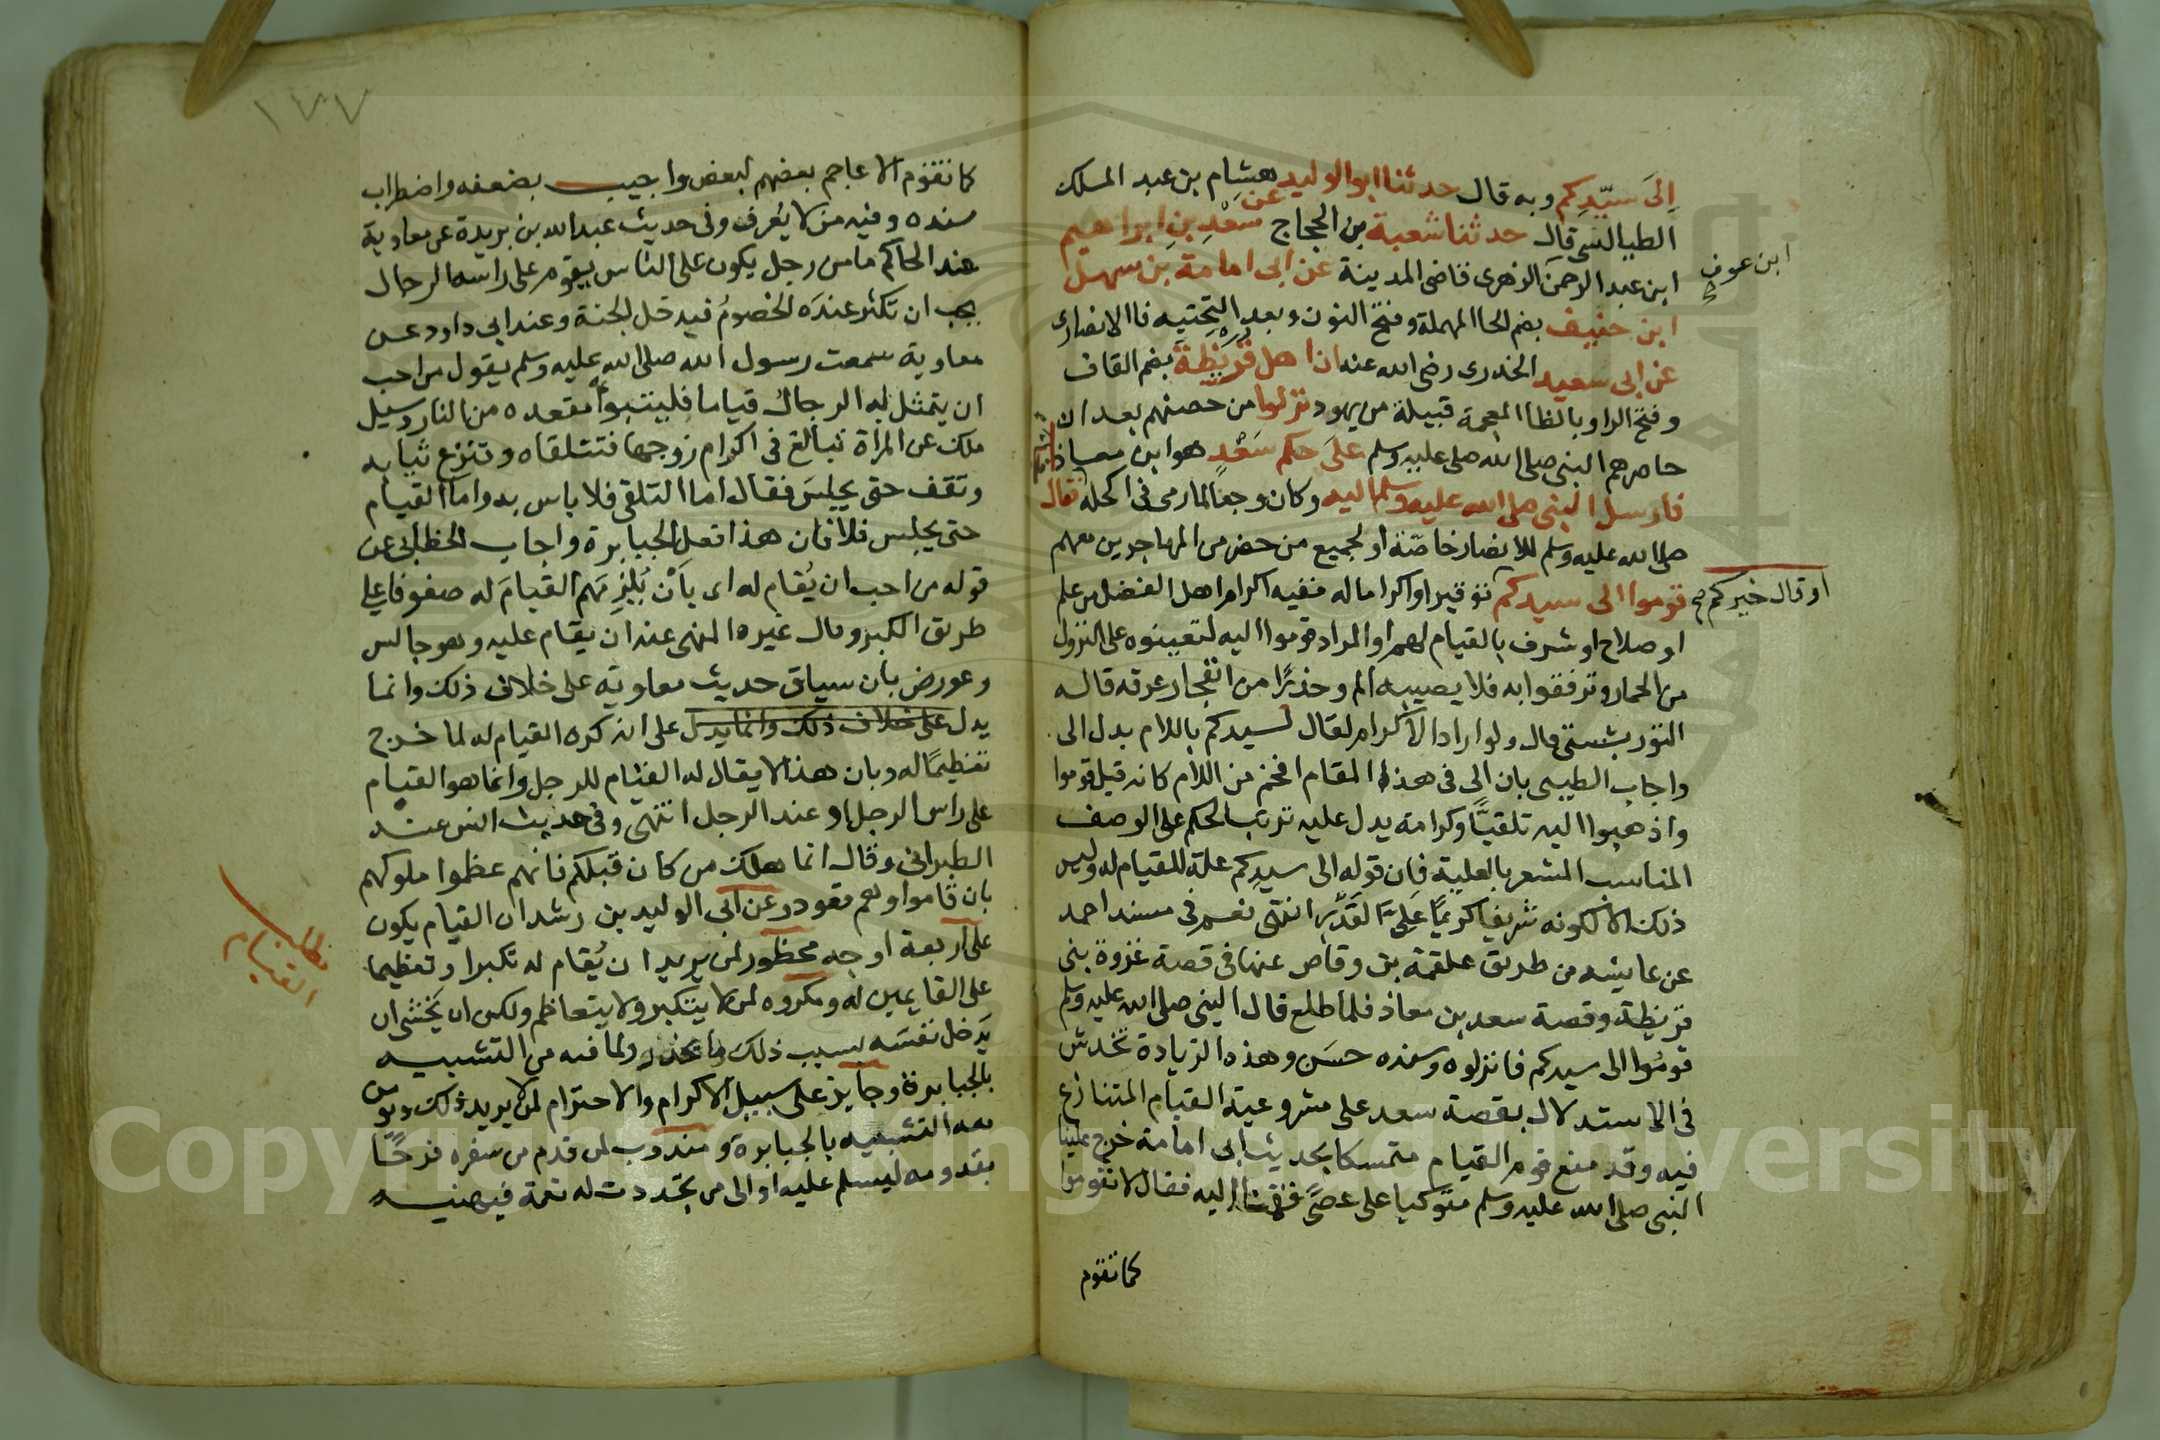 إلى سيّدكم وبه قال حدثنا ابو الوليد هشام بن عبد الملك
الطيالسي قال حدثنا شعبة بن الحجاج عن سَعْدِ بنِ ابراهيم
ابن عوف
ابن عبد الرحمن الزهرى قاضى المدينة عن ابى امامة بن سهل
ابن حنيف بضم الحا المهملة وفتح النون وبعد التحتيه فا الانصارى
عن ابى سعيد الخدرى رضى الله عنه ان اهل قُرَيْظةَ بضم القاف
وفتح الرا وبالظا المعجمة قبيلة من يهود نزلوا من حصنهم بعد ان
حاصرهم النبى صلى الله صلى عليه وسلم على حكم سَعْدٍ هو ابن معاذ
فارسل النبى صلى الله عليه وسلم اليه وكان وجعًا لما رمى فى اكحله فقال
صلى الله عليه وسلم للانصار خاصّة او لجميع من حضر من المهاجرين معهم
او قال خيركم صح
قوموا الى سيدكم توقيرا واكراما له ففيه اكرام اهل الفضل من علم
او صلاح او شرف بالقيام لهم او المراد قوموا اليه لتعينوه على النزول
من الحمار وترفقوا به فلا يصيبه الم وحذرًا من انفجار عرقه قاله
التوربشتى قال ولو اراد الاكرام لقال لسيدكم باللام بدل الى
واجاب الطيبى بان الى فى هذا المقام افخم من اللام كانه قيل قوموا
واذهبوا اليه تلقيًا وكرامة يدل عليه ترتب الحكم على الوصف
المناسب المشعر بالعلية فان قوله الى سيدكم علة للقيام له وليس
ذلك الا لكونه شريفا كريمًا عَلِيَّ القَدْرِ انتهى نعم فى مسند احمد
عن عايشه من طريق علقمة بن وقاص عنها فى قصة غزوة بنى
قريظة وقصة سعد بن معاذ فلما طلع قال النبى صلى الله عليه وسلم
قوموا الى سيدكم فانزلوه وسنده حسَن وهذه الزيادة تخدش
فى الاستدلال بقصة سعد على مشروعية القيام المتنازع
فيه وقد منع قوم القيام متمسكا بحديث ابى امامة خرج علينا
النبى صلى الله عليه وسلم متوكيا على عصًى فقمنا اليه فقال لا تقوموا
كما تقوم
١٧٧
كما تقوم الاعاجم بعضهم لبعض واجيب بضعفه واضطراب
سنده وفيه من لا يُعرف وفى حديث عبد الله بن بريدة عن معاوية
عند الحاكم ما من رجل يكون على الناس يقوم على راسه الرجال
يجب ان تكثر عندَه الخصومُ فيدخل الجنة وعند ابى داود عن
معاوية سمعت رسول الله صلى الله عليه وسلم يقول من احب
ان يتمثل له الرجال قياما فليتبوأ مقعده من النار وسيل
ملك عن المراة تبالغ فى اكرام زوجها فتتلقاه وتنزع ثيابه
وتقف حتى يجلسَ فقال اما التلقى فلا باس به واما القيام
حتى يجلس فلا فان هذا فعل الجبابرة واجاب الخطابى عن
قوله من احب ان يُقام له اى بأَنْ يُلزِمَهم القيامَ له صفوفا على
طريق الكبر وقال غيره المنهى عنه ان يقام عليه وهو جالس
وعورض بان سياق حديث معاوية على خلاف ذلك وانما
يدل على خلاف ذلك وانما يدل على انه كره القيام له لما خرج
تعظيمًا له وبان هذا لا يقال له القيام للرجل وانما هو القيام
على راس الرجل او عند الرجل انتهى وفى حديث انس عند
الطبرانى وقال انما هلك من كان قبلكم فانهم عظموا ملوكهم
بان قاموا وهم قعود وعن ابى الوليد بن رشد ان القيام يكون
مطلب القيام
على اربعة اوجه محظور لمن يريد ان يُقام له تكبرا وتعظيما
على القايمين له ومكروه لمن لا يتكبر ولا يتعاظم ولكن ان يَخشى ان
يَدخل نفسَه بسبب ذلك ما يحذر ولما فيه من التشبيه
بالجبابرة وجايز على سبيل الاكرام والاحترام لمن لا يريد ذلك ويومن
معه التشبيه بالجبابرة ومندوب لمن قدم من سفره فرحًا
بقدومه ليسلم عليه او الى من تجددت له نعمة فيهنيه
Copyright © King Saud University